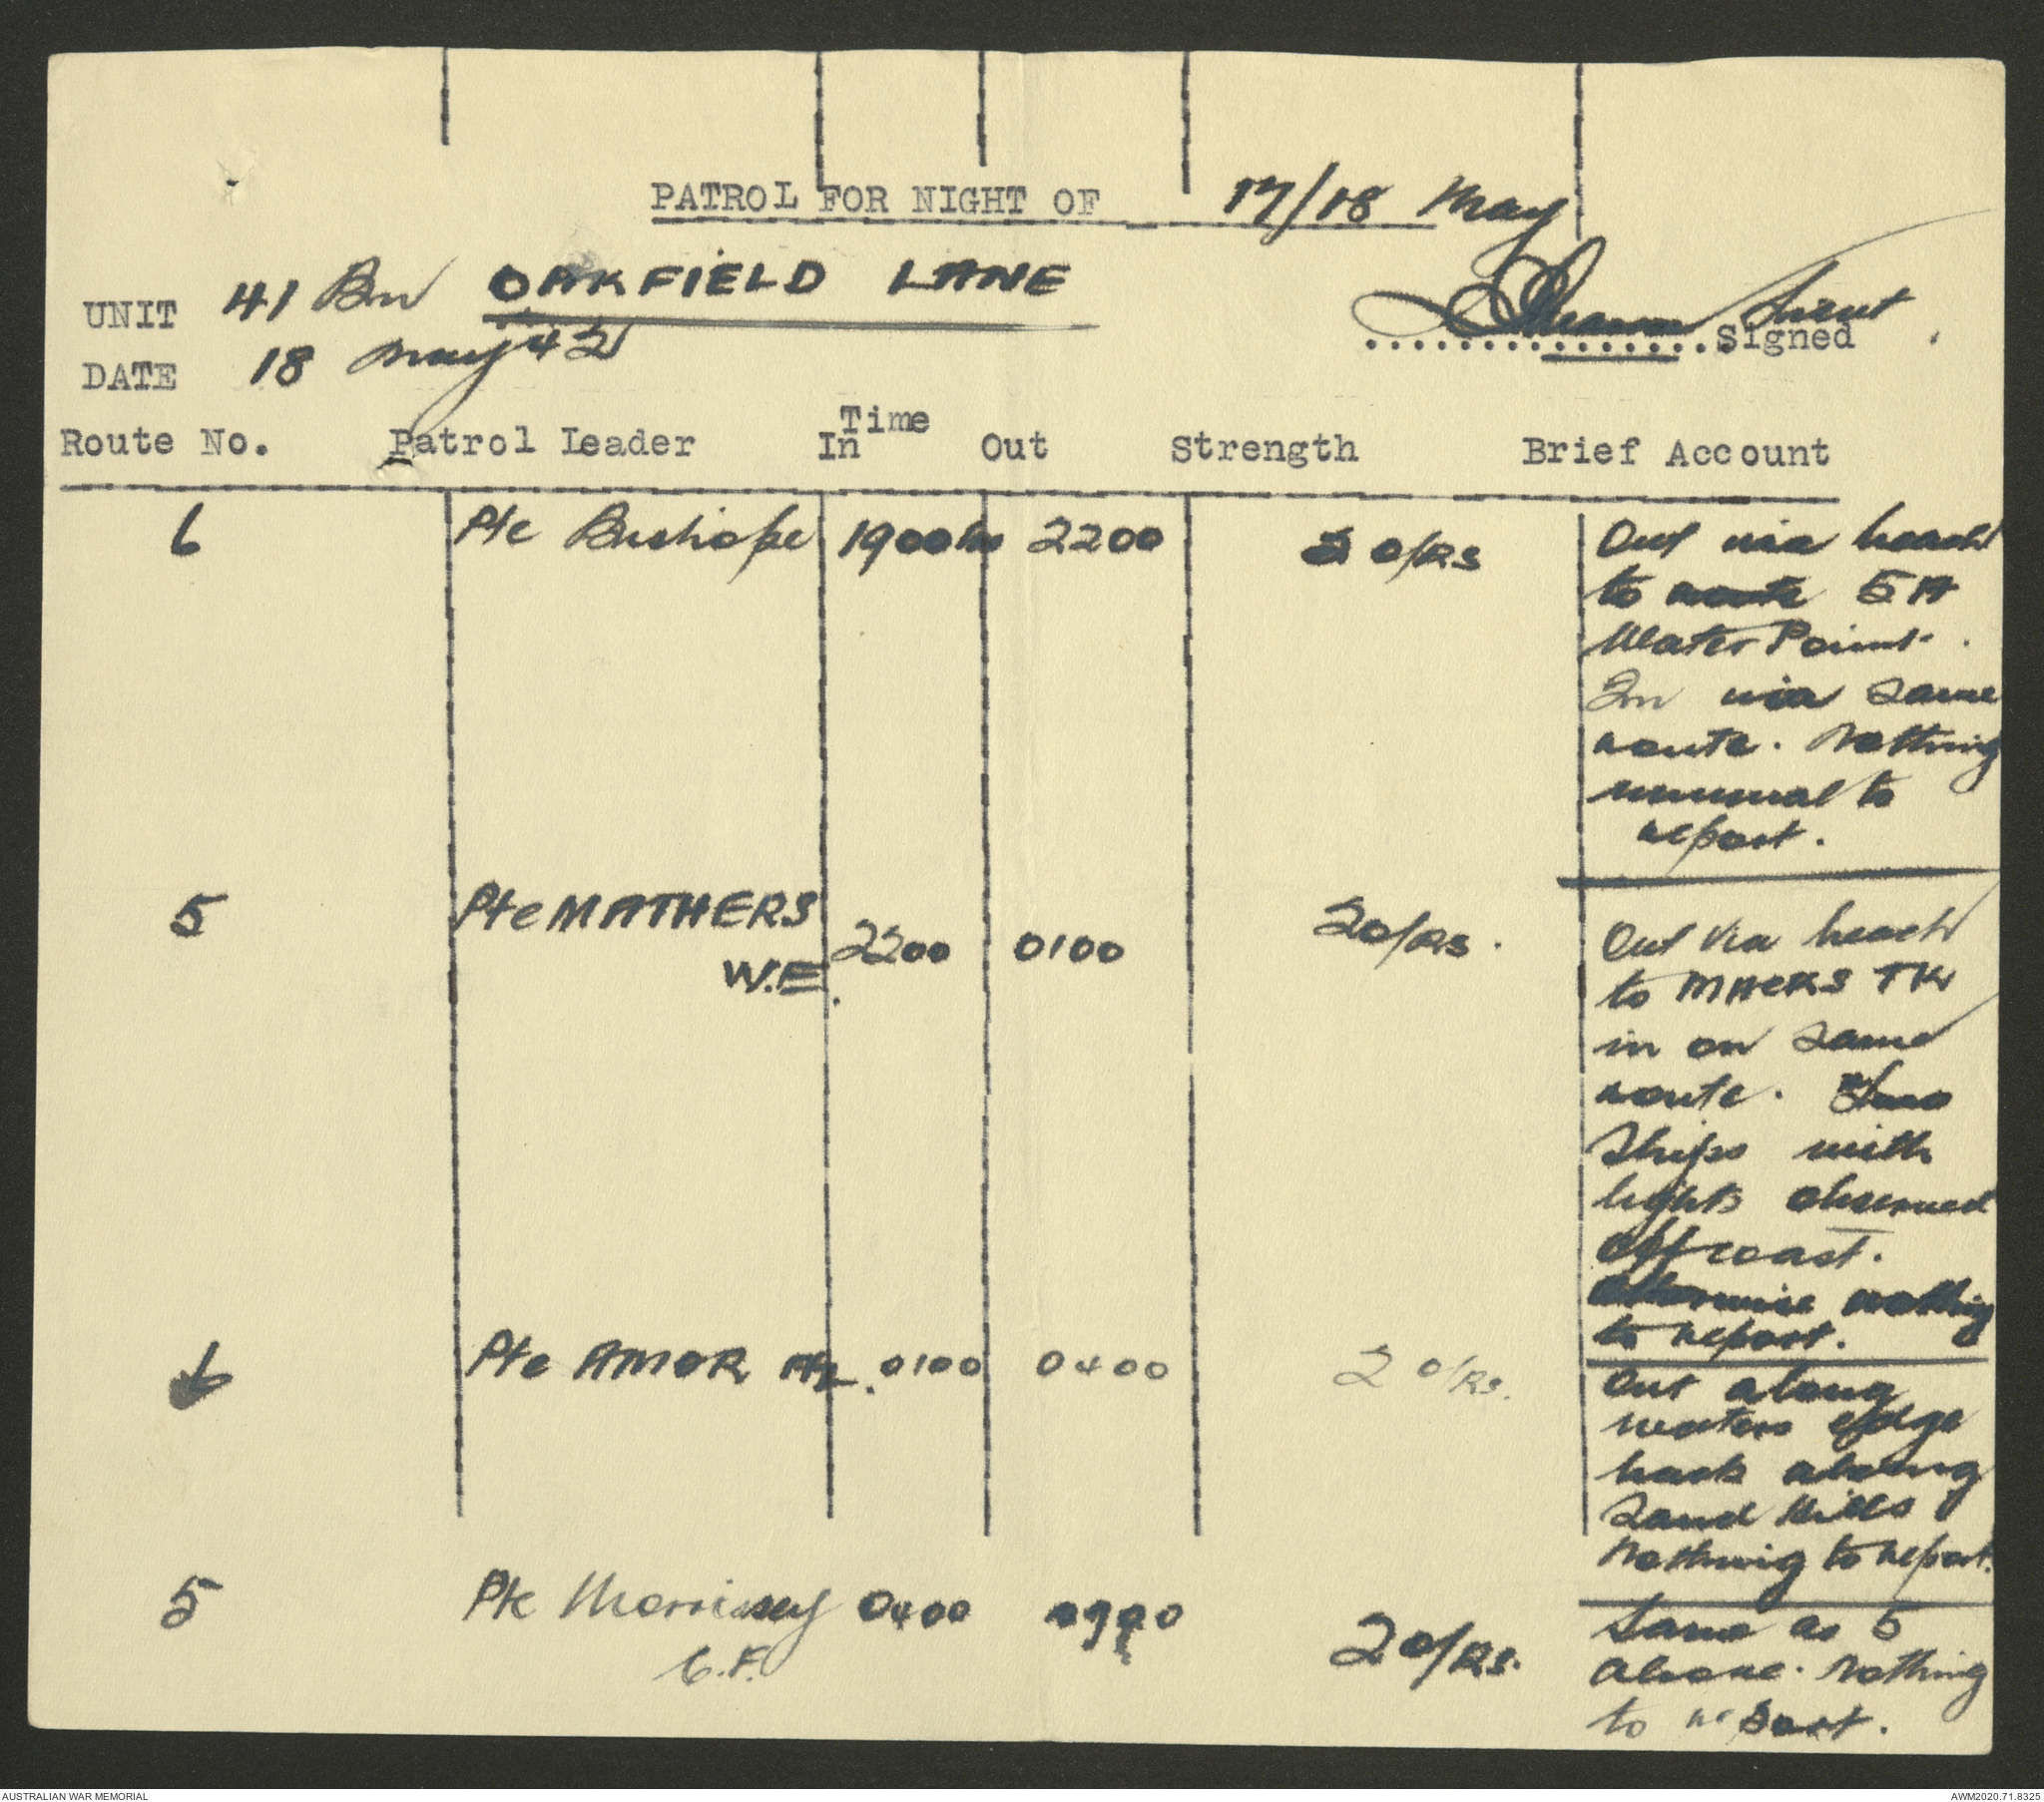 PATROL FOR NIGHT OF 17/18 May
UNIT 41 Bn OAKFIELD LANE
Lieut
Signed
DATE 18 May 42
Route No. Patrol Leader Time In Out Strength Brief Account
6 Pte Bushope 1900hrs 2200 2 O/Rs Out via beach
to route 5A
Water Point.
In via same
route. Nothing
unusual to
report.
5 Pte MATHERS
W.E. 2200 0100 2 O/Rs. Out via beach
to MACKS TK
in on same
route. Two
Ships with
lights observed
off coast.
Otherwise nothing
to report.
6 Pte AMOR 0100 0400 2 O/Rs. Out along
waters edge
back along
Sand Hills
Nothing to report.
5 Pte Morrissey
C.F. 0400 2 O/Rs. Same as 5
above. Nothing
to report.
AUSTRALIAN WAR MEMORIAL
AWM2020.71.8325